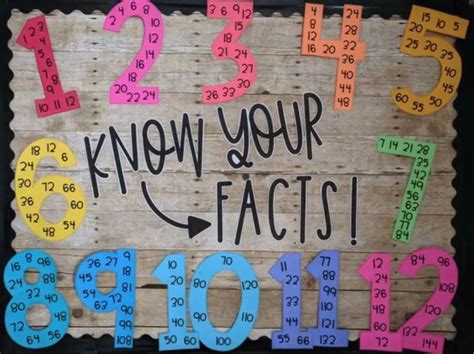 1
1 2
3
4
5
6
7
8
9
10 11 12
2
2 4 6
8
10
12
14
16
18
20 22 24
3
3 6 9
12
15
18
21
24
27
30
36 33
4
4 32
8 36
12
16 20 24 28
40
44
48
5
15 10 5
20
25 30
35
40
45
50
60 55
6
18 12 6
24
30
36
42
48
54
60
66
72
7
7 14 21 28
35
42
49
56
63
70
77
84
KNOW YOUR
FACTS!
8
9
10
10
20
30
40
50
60
70
80
90
100
110
120
11
11
22
33
44
55
66
77
88
99
110
121
132
12
12
24
36
48
60
72
84
96
108
120
132
144